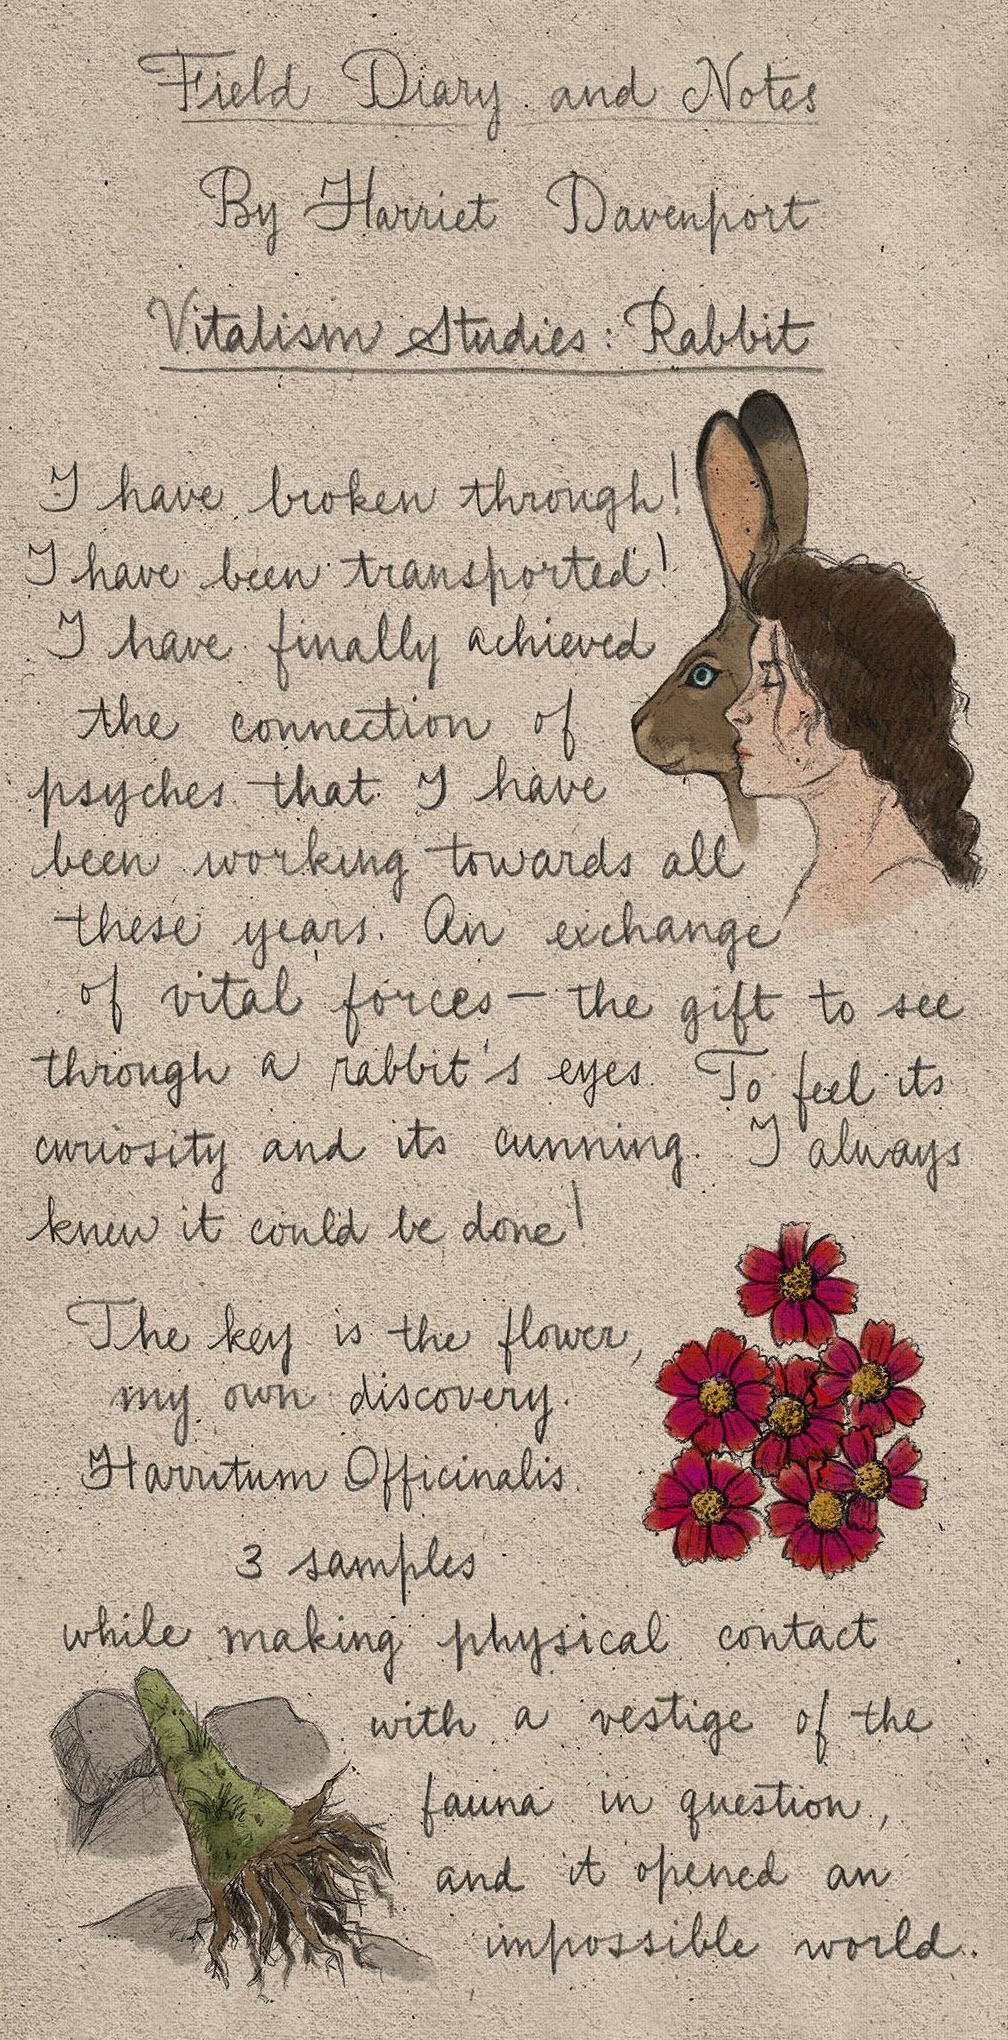 Field Diary and Notes
By Harriet Davenport
Vitalism Studies: Rabbit
I have broken through!
I have been transported!
I have finally achieved
the connection of
psyches that I have
been working towards all
these years. An exchange
of vital forces - the gift to see
through a rabbit's eyes. To feel its
curiosity and its cunning. I always
knew it could be done!
The key is the flower,
my own discovery.
Harritum Officinalis.
3 samples
while making physical contact
with a vestige of the
fauna in question,
and it opened an
impossible world..